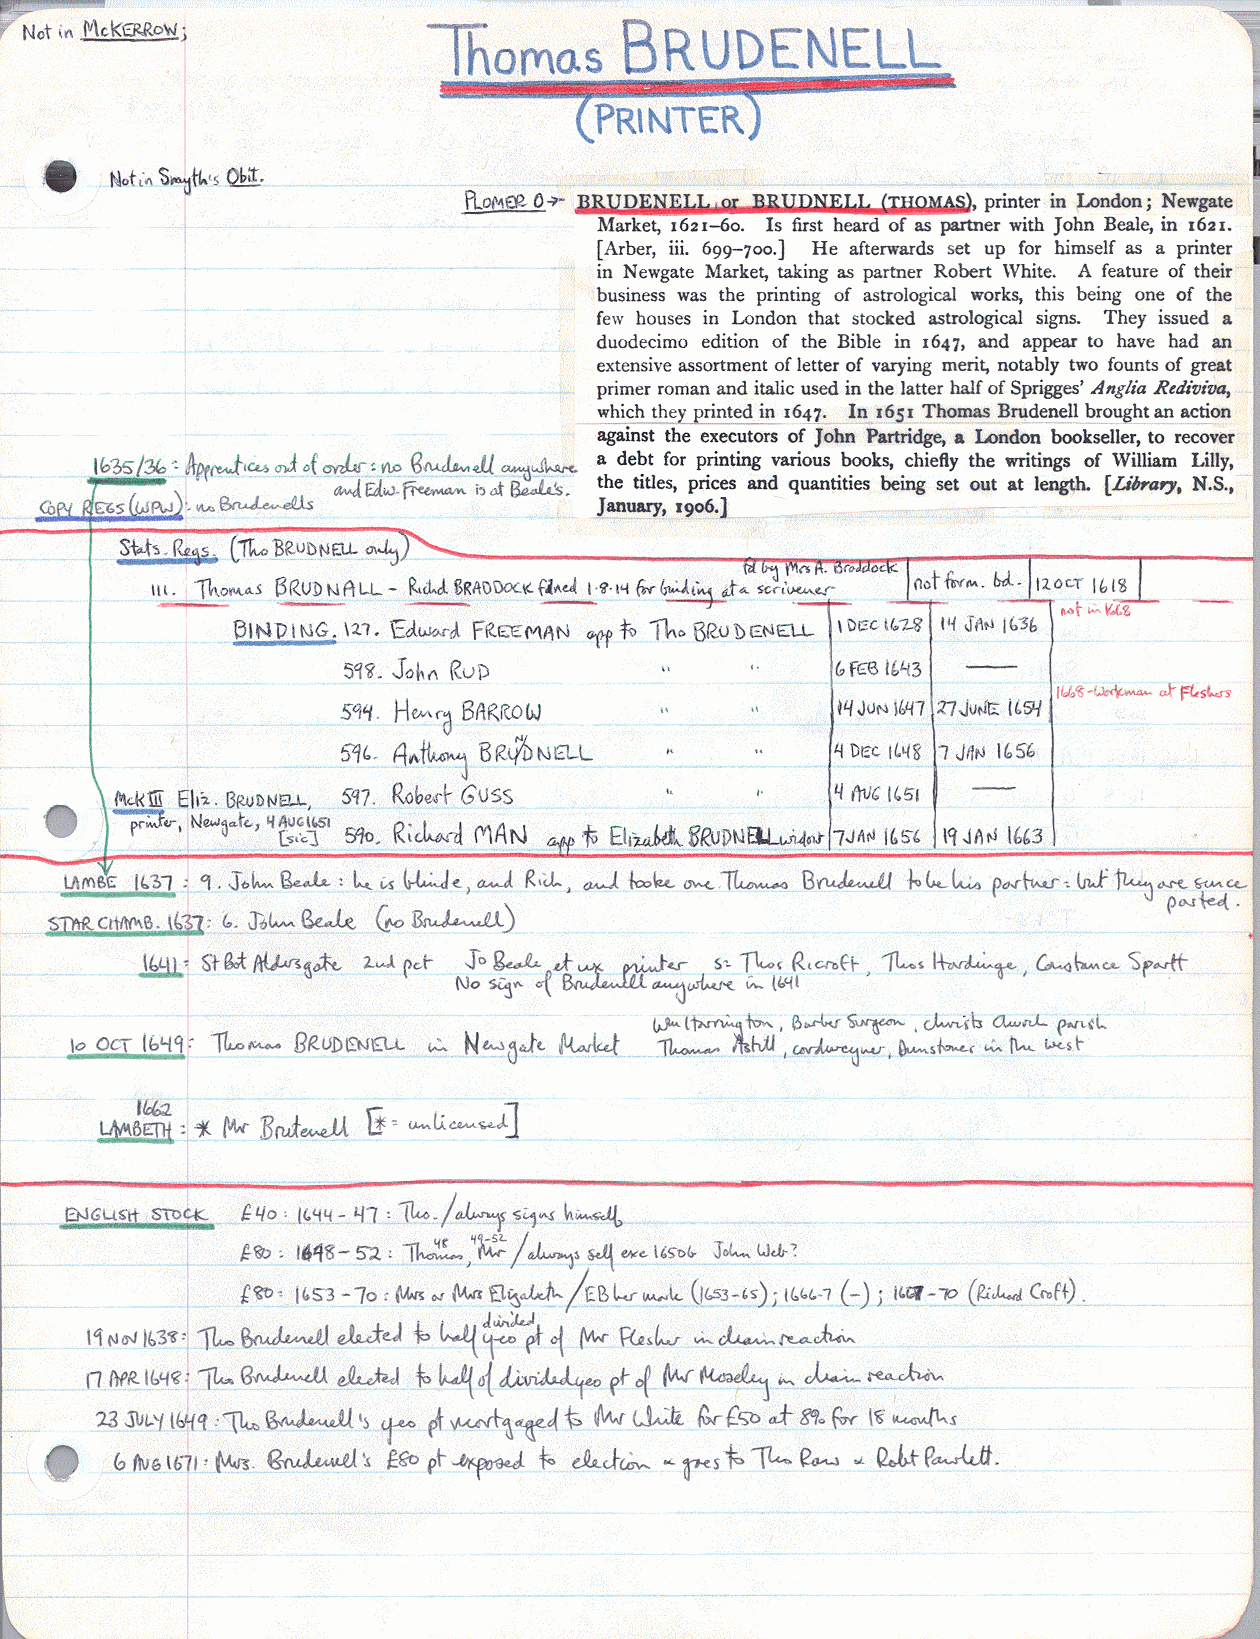 Not in McKERROW;
Thomas BRUDENELL
(PRINTER)
Not in Smyth's Obit.
PLOMER O→ BRUDENELL or BRUDNELL (THOMAS), printer in London; Newgate
Market, 1621–60. Is first heard of as partner with John Beale, in 1621.
[Arber, iii. 699–700.] He afterwards set up for himself as a printer
in Newgate Market, taking as partner Robert White. A feature of their
business was the printing of astrological works, this being one of the
few houses in London that stocked astrological signs. They issued a
duodecimo edition of the Bible in 1647, and appear to have had an
extensive assortment of letter of varying merit, notably two founts of great
primer roman and italic used in the latter half of Sprigges' Anglia Rediviva,
which they printed in 1647. In 1651 Thomas Brudenell brought an action
against the executors of John Partridge, a London bookseller, to recover
a debt for printing various books, chiefly the writings of William Lilly,
the titles, prices and quantities being set out at length. [Library, N.S.,
January, 1906.]
1635/36: Apprentices out of order: no Brudenell anywhere
and Edw. Freeman is at Beale's.
COPY REGS (WPW): no Brudenells
Stats. Regs. (Tho BRUDNELL only)
fd by Mrs A. Braddock
111. Thomas BRUDNALL - Richd BRADDOCK fined 1·8·14 for binding at a scrivener not form. bd. - 12 OCT 1618
not in K68
BINDING. 127. Edward FREEMAN app to Tho BRUDENELL 1 DEC 1628 14 JAN 1636
598. John RUD " " 6 FEB 1643 —
1668 - Workman at Fleshers
594. Henry BARROW " " 14 JUN 1647 27 JUNE 1654
596. Anthony BRUDNELL " " 4 DEC 1648 7 JAN 1656
McK III Eliz. BRUDNELL, 597. Robert GUSS " " 4 AUG 1651 —
printer, Newgate, 4 AUG 1651
[sic] 590. Richard MAN app to Elizabeth BRUDNELL widow 7 JAN 1656 19 JAN 1663
LAMBE 1637: 9. John Beale: he is blinde, and Rich, and tooke one Thomas Brudenell to be his partner: but they are since
parted.
STAR CHAMB. 1637: 6. John Beale (no Brudenell)
1641: St Bot Aldersgate 2nd pct Jo Beale et ux printer s= Thos Ricroft, Thos Hardinge, Constance Spartt
No sign of Brudenell anywhere in 1641
Wm Harrington, Barber Surgeon, Christs Church parish
10 OCT 1649: Thomas BRUDENELL in Newgate Market Thomas Astill, cordweyner, Dunstones in the west
1662
LAMBETH: * Mr Brutenell [* = unlicensed]
ENGLISH STOCK £40: 1644-47: Tho. / always signs himself
48 49-52
£80: 1648-52: Thomas, Mr / always self exc 1650b John Web?
£80: 1653-70: Mrs or Mrs Elizabeth / EB her mark (1653-65); 1666-7 (-); 1667-70 (Richard Croft).
divided
19 NOV 1638: Tho Brudenell elected to half yeo pt of Mr Flesher in chain reaction
17 APR 1648: Tho Brudenell elected to half of divided yeo pt of Mr Moseley in chain reaction
23 JULY 1649: Tho Brudenell's yeo pt mortgaged to Mr White for £50 at 8% for 18 months
6 AUG 1671: Mrs. Brudenell's £80 pt exposed to election & goes to Tho Raw & Robt Pawlett.